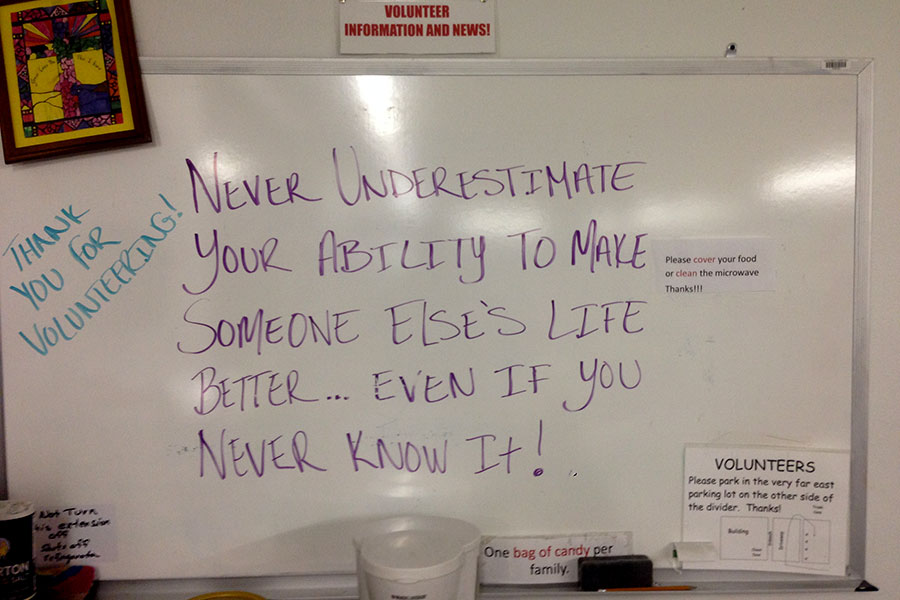 VOLUNTEER
INFORMATION AND NEWS!
THANK
YOU FOR
VOLUNTEERING!
NEVER UNDERESTIMATE
YOUR ABILITY TO MAKE
SOMEONE ELSE'S LIFE
BETTER... EVEN IF YOU
NEVER KNOW It!
Please cover your food
or clean the microwave
Thanks!!!
VOLUNTEERS
Please park in the very far east
parking lot on the other side of
the divider. Thanks!
Building
Not Turn
extension
off
Shuts off
One bag of candy per
family.